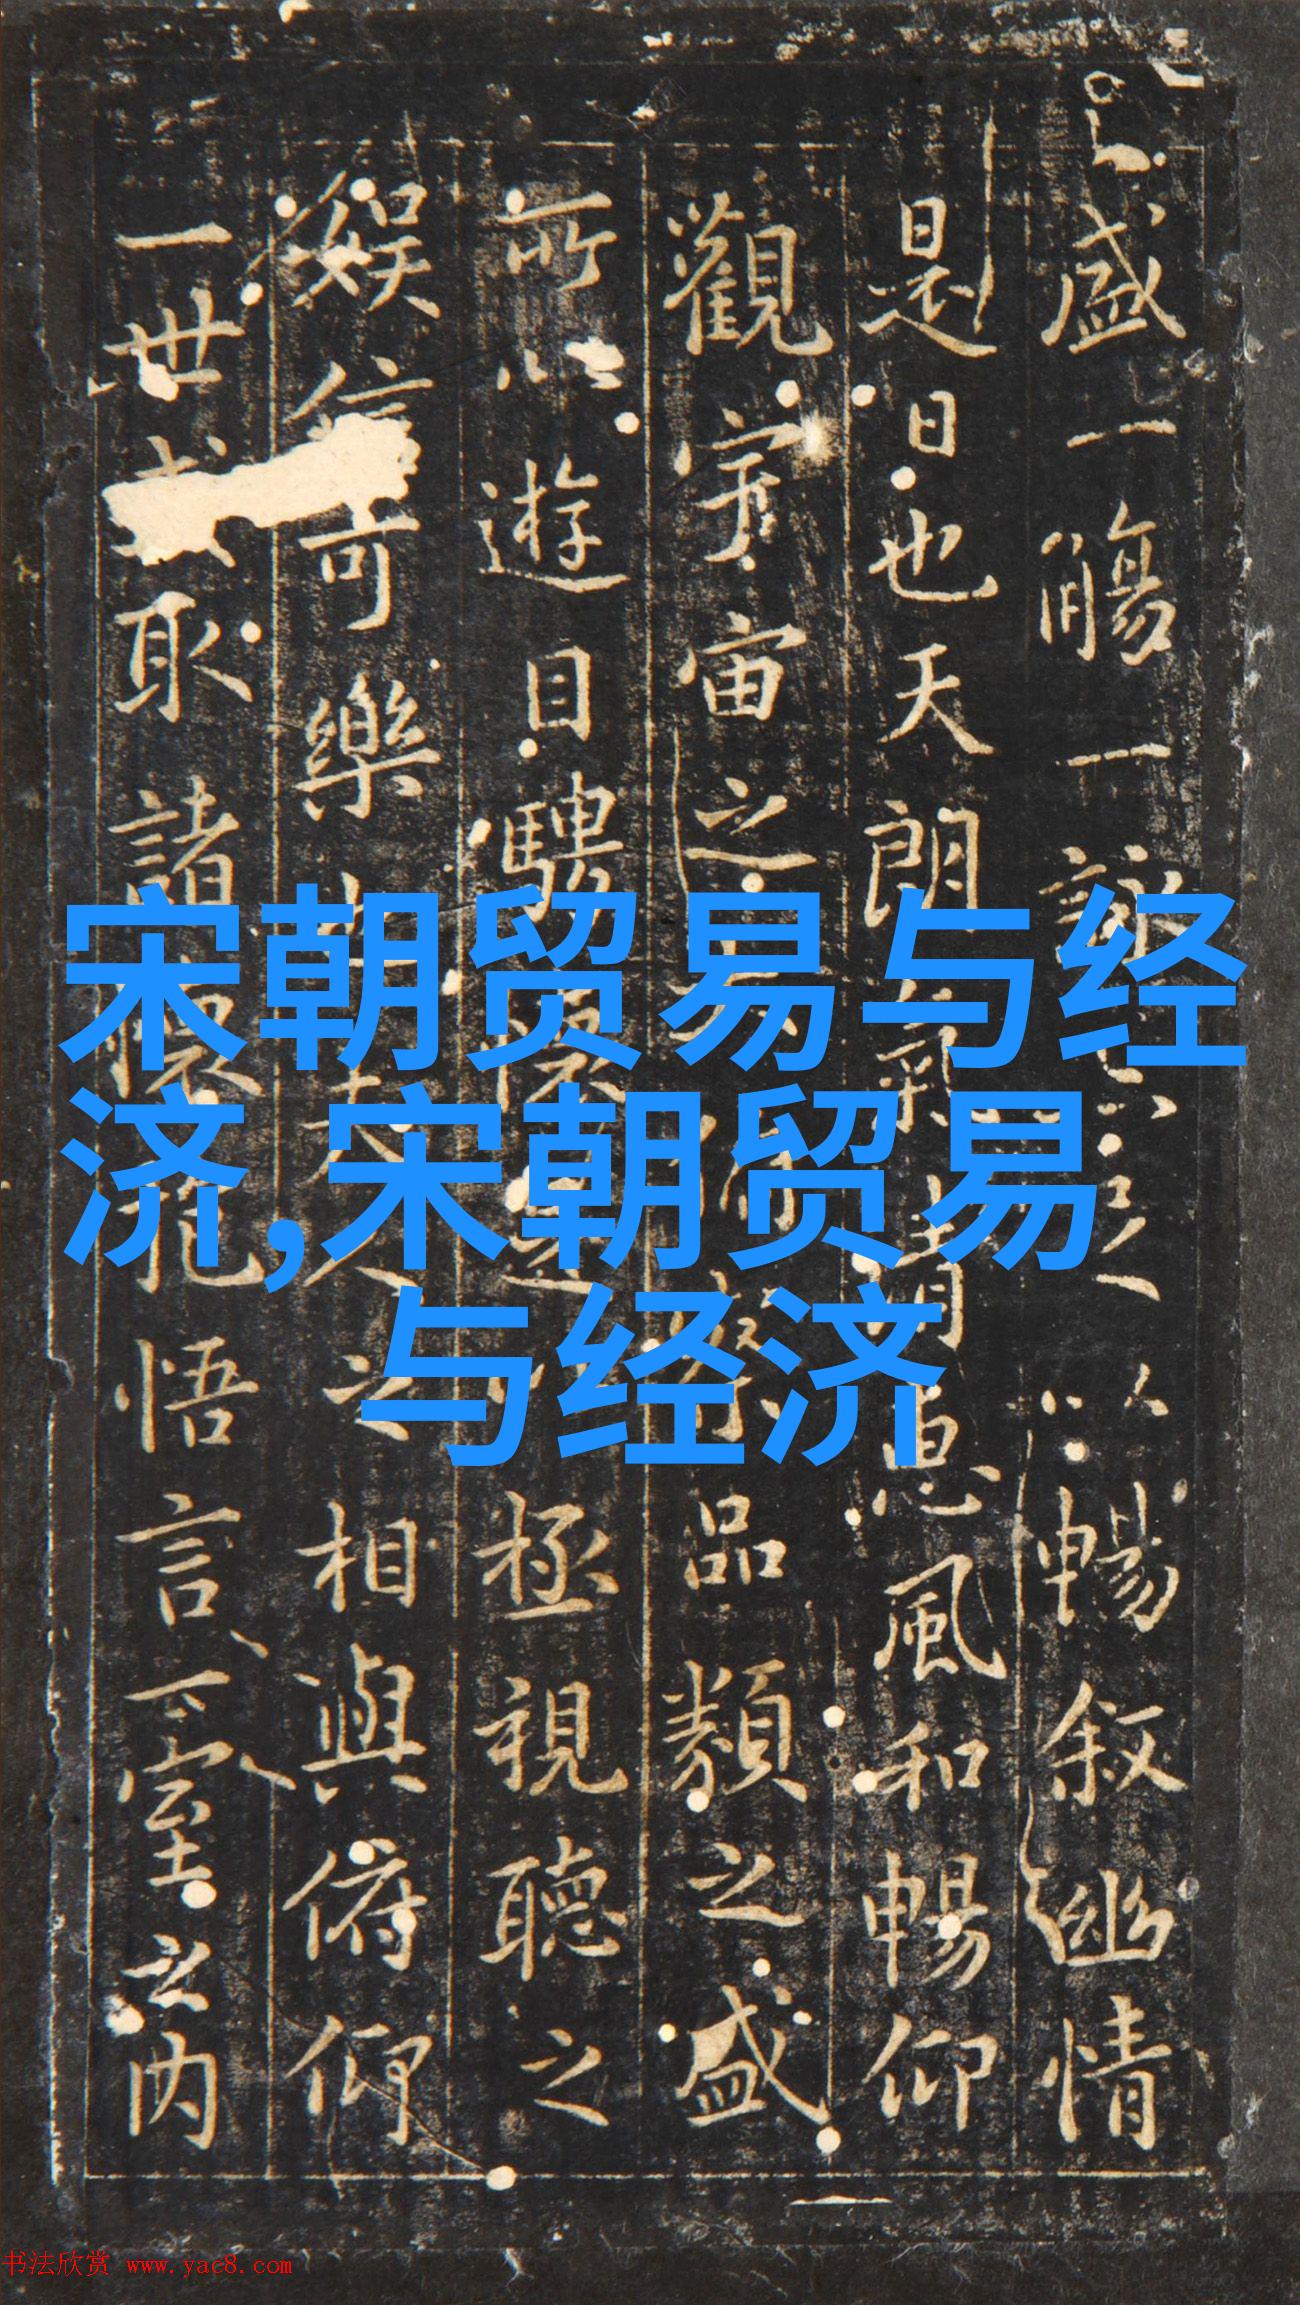 盛一觴一詠以暢叙幽情
是日也天朗氣清惠風和暢仰
觀宇宙之品類之盛
所以遊目騁懷足以極視聽之
娱信可樂也夫人之相與俯仰
一世或取諸懷抱悟言一室之内
宋朝贸易与经
济,宋朝贸易
与经济
书法欣赏 www.yac8.com